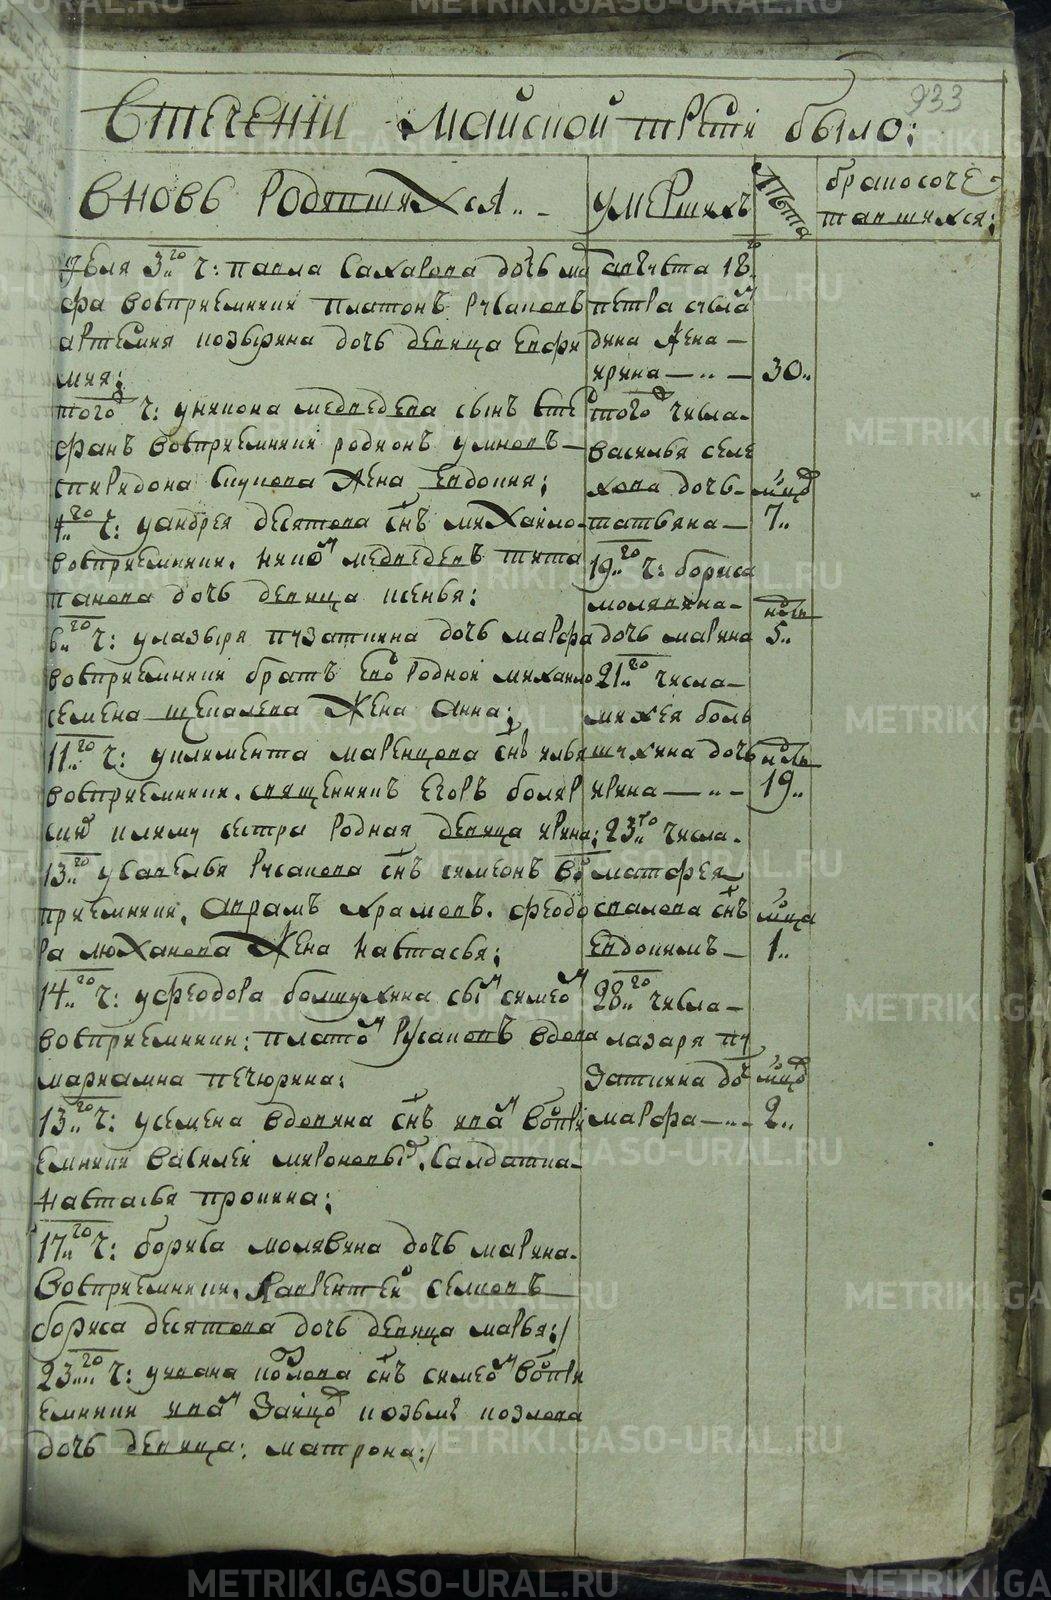 933
Втечении майской трети было:
вновь родившихся..
умерших
лѣта
бракосоче
тавшихся:
Июля 3го ч: павла Сахарова дочь ма
рфа восприемники платонъ русаковъ
артемия козырина дочь девица евфи
мия:
того ч: у никона медведева сынъ сте
фанъ восприемники родионъ умновъ
спиридона Скупова жена евдокия:
4го ч: уандрея десятова снъ михайло
восприемники. никон медведевъ тита
панова дочь девица ксенья:
6го ч: улазыря пузаткина дочь марфа
восприемники братъ ево родной михаило
семена щепалева жена анна:
11го ч: уклимента маренцова снъ илья
восприемники. священникъ Егоръ бояр
ский климу сестра родная девица ирина:
13го усавелья русакова снъ симеонъ вос
приемники. аврамъ храмовъ. феодо
ра люханова жена настасья:
14го ч: уфеодора болшухина сын симеон
восприемники: платон русаковъ вдова
мариамна печюрина:
13го ч: усемена вдовина снъ иван воспри
емники василеи мироновых. салдатка
настасья пронина:
17го ч: бориса молявина дочь марина
восприемники. лаврентей семковъ
бориса десятова дочь девица марья:
23го ч: уивана козлова снъ симеон воспри
емники иван Зайцов козьмы козлова
дочь девица: матрона:
августа 18го
петра сысалы
дина жена
ирина 30..
того числа
василья селе
хова дочь
татьяна мсцов 7..
19го ч: бориса
молявина
дочь марина нель 5..
21го числа
михея боль
шухина дочь
ирина нель 19..
23го числа
матфея
спалова снъ
евдокимъ мсца 1..
28го числа
лазаря пу
заткина дочь
марфа мсцов 2..
METRIKI.GASO-URAL.RU